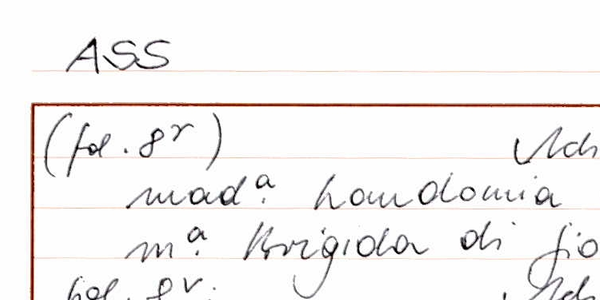 ASS
(fol. 8r)
mad.a Laudomia
m.a Brigida di
fol. 8v.